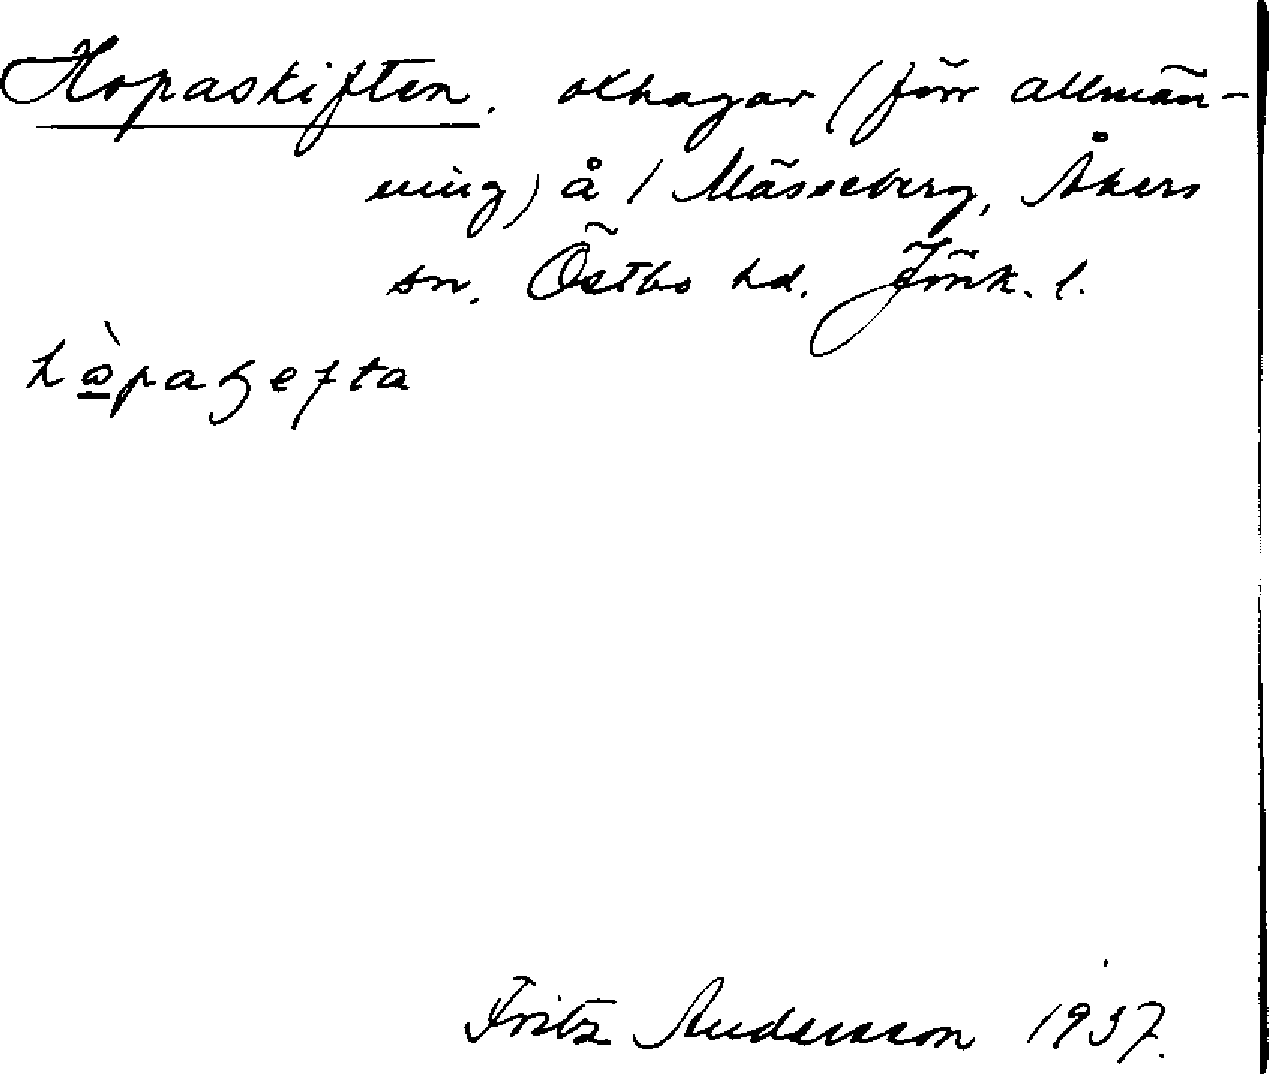 Hopaskiften. oxhagar (förr allmän-
ning) å / Mässeberg, Åkers
sn. Östbo hd. Jönk. l.
hòpaʃefta
Fritz Andersson 1937.